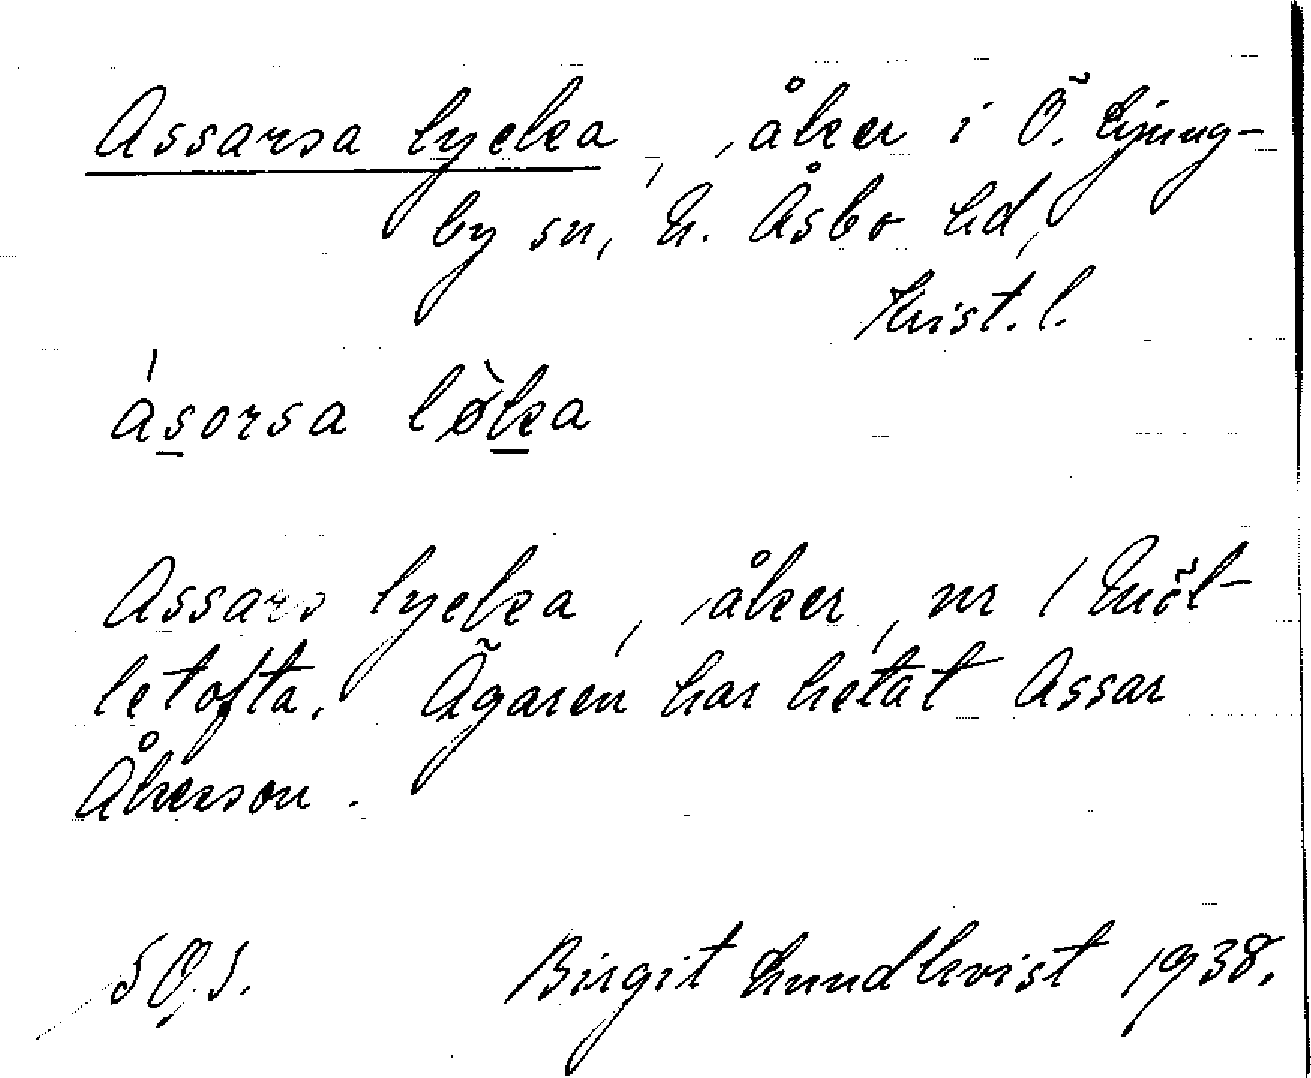 Assarsa lycka, åker i Ö. Ljung-
by sn, N. Åsbo hd,
Krist. l.
ásorsa lø̀ka
Assars lycka, åker, nr 1 Möl-
letofta. Ägaren har hetat Assar
Åkerson.
Birgit Lundkvist 1938.